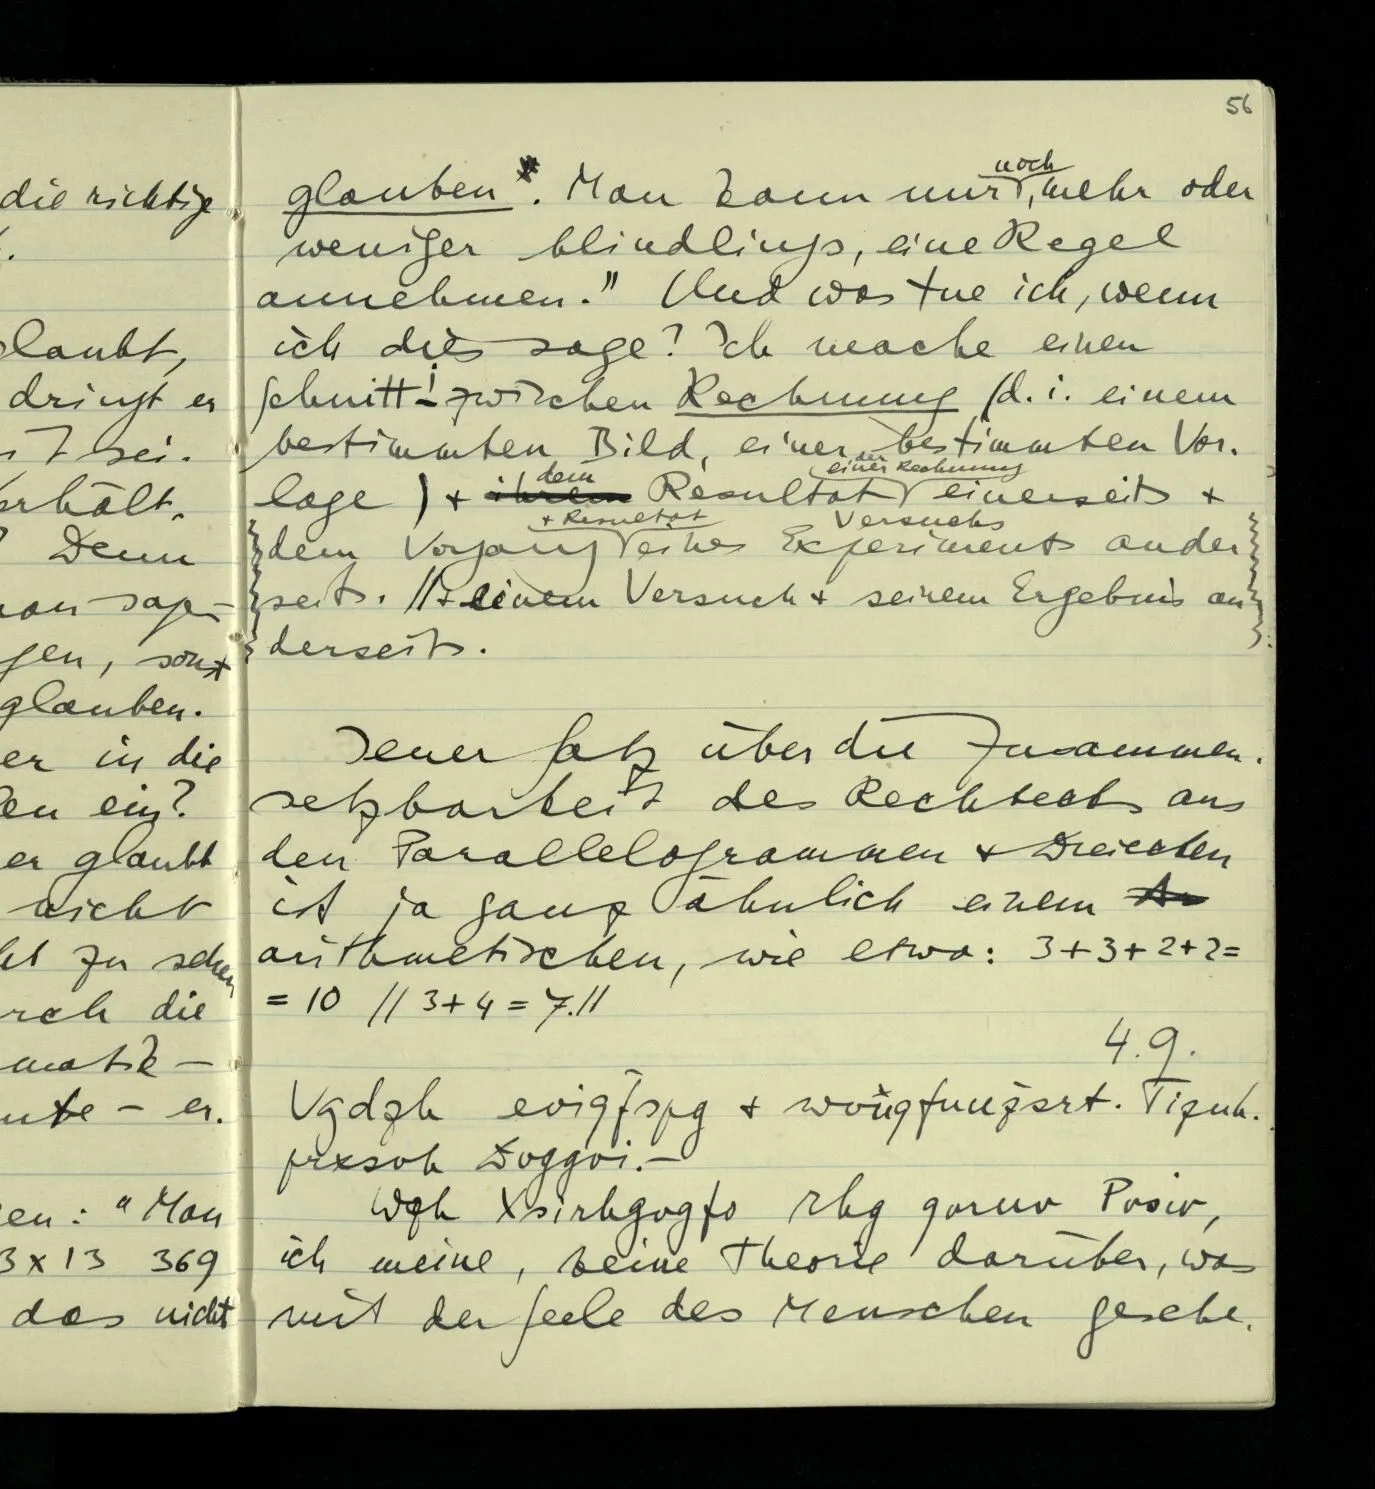 56
die richtige
glaubt,
dringt er
sei.
Denn
man sagen
sonst
glauben.
er in die
ein?
er glaubt
nicht
zu sehen
durch die
er.
"Man
3 x 13 369
das nicht
glauben. Man kann nur noch, mehr oder
weniger blindlings, eine Regel
annehmen." Und was tue ich, wenn
ich dies sage? Ich mache einen
Schnitt! – zwischen Rechnung (d. i. einem
bestimmten Bild, einer bestimmten Vor-
lage) + dem Resultat einer Rechnung einerseits +
dem Vorgang + Resultat eines Experiments Versuchs ander
seits. // + einem Versuch + seinem Ergebnis an
derseits.
Jener Satz über die Zusammen-
setzbarkeit des Rechtecks aus
den Parallelogrammen + Dreiecken
ist ja ganz ähnlich einem
arithmetischen, wie etwa: 3+3+2+2=
= 10 // 3+4=7.//
4.9.
+
Wgh Xsirhgvgfo rhg
ich meine, keine Theorie darüber, was
mit der Seele des Menschen gesche-